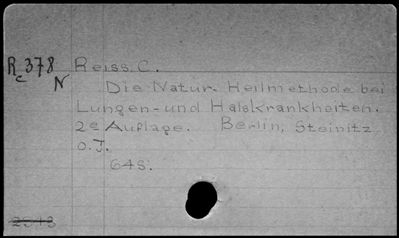 Rc 378 N
Reiss. C.
Die Natur. Heilmethode bei
Lungen- und Halskrankheiten.
2e Auflage. Berlin, Steinitz
o.J.
64S.